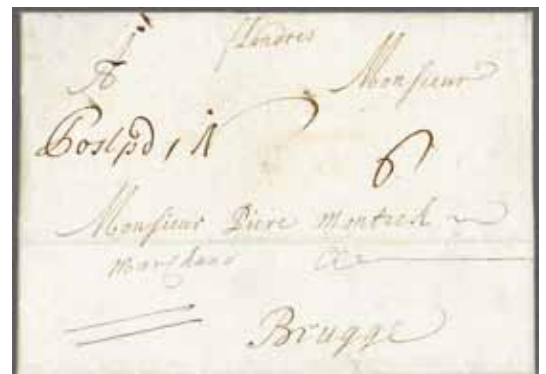 flandres
Monsieur
Postpd 1
6
Monsieur Piere Montest
Marchand A
Brugge